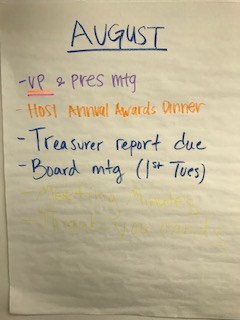 AUGUST
- VP & Pres mtg
- Host Annual Awards Dinner
- Treasurer report due
- Board mtg (1st Tues)